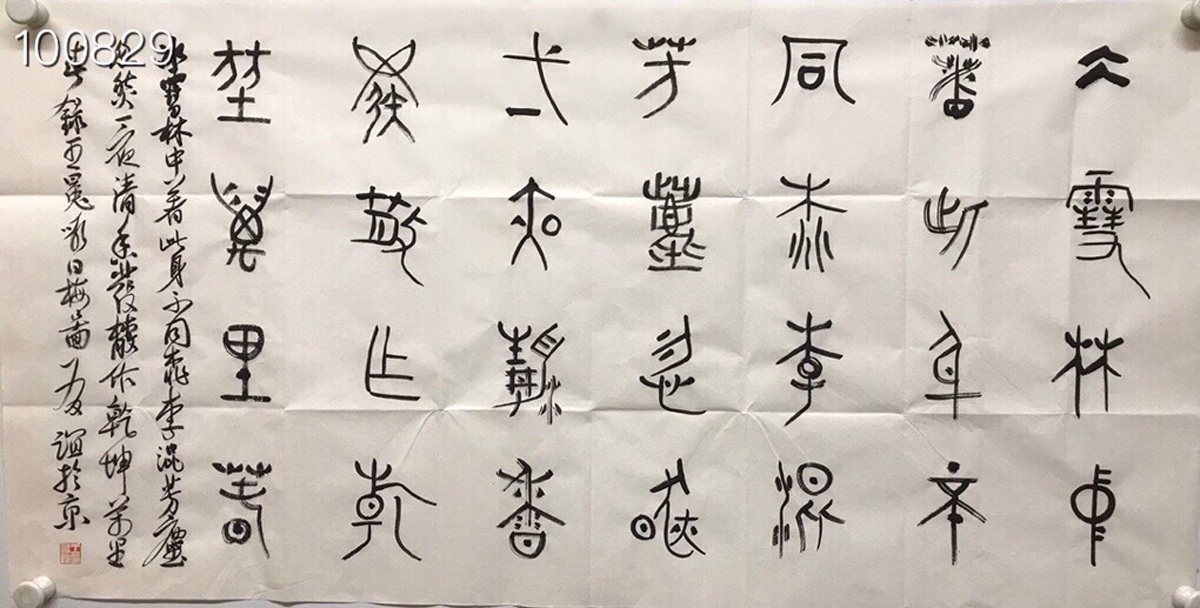 100829
冰雪林中
著此身不
同桃李混
芳塵忽然
弌夜清香
發散作乾
坤萬里春
冰雪林中著此身不同桃李混芳塵
忽然一夜清香發散作乾坤萬里
春錄王冕白梅於京